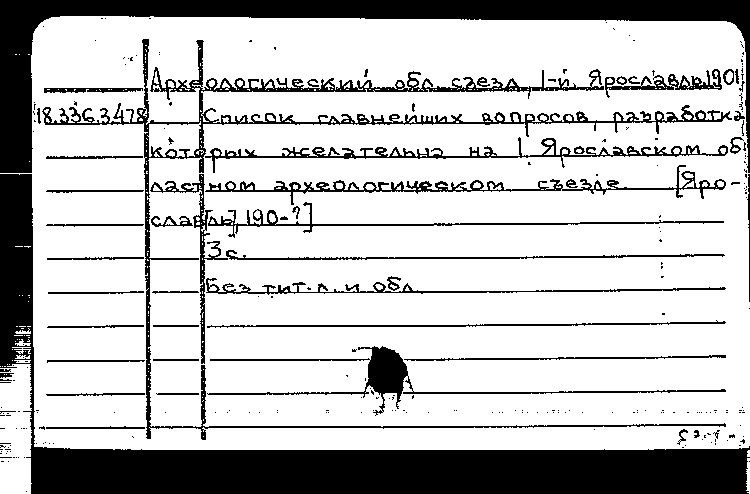 Археологический обл. съезд, 1-й. Ярославль. 1901
18.336.3.478. Список главнейших вопросов, разработка
которых желательна на I Ярославском об
ластном археологическом съезде. [Яро-
слав[ль], 190-?]
3с.
Без тит. л. и обл.